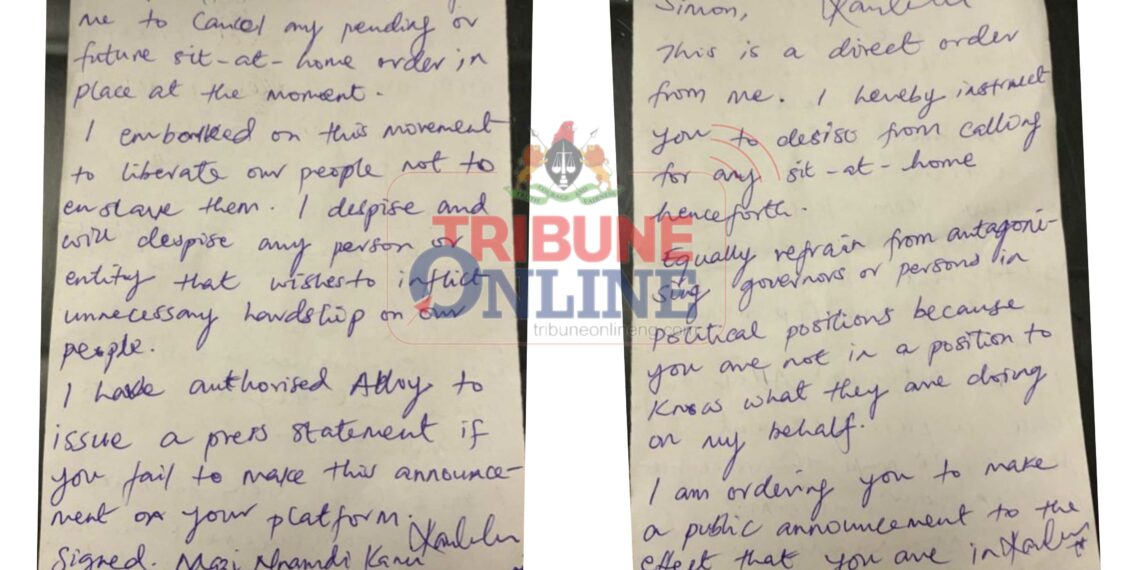 me to cancel any pending or
future sit-at-home order in
place at the moment.
I embarked on this movement
to liberate our people not to
enslave them. I despise and
will despise any person or
entity that wishes to inflict
unnecessary hardship on our
people.
I have authorised Alloy to
issue a press statement if
you fail to make this announce-
ment on your platform.
Signed. Mazi Nnamdi Kanu
Simon,
This is a direct order
from me. I hereby instruct
you to desist from calling
for any sit-at-home
henceforth.
Equally refrain from antagoni-
sing governors or persons in
political positions because
you are not in a position to
know what they are doing
on my behalf.
I am ordering you to make
a public announcement to the
effect that you are in
TRIBUNE
ONLINE
tribuneonlineng.com